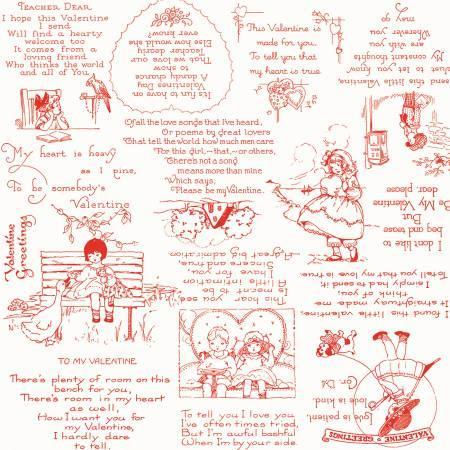 TEACHER DEAR.
I hope this Valentine
I send
Will find a hearty
welcome too
It comes from a
loving friend
Who thinks the world
and all of You.
It's fun to have on
Valentines Day
A dandy chance
to declare it,
That we love our
Teacher dearly
Else how would she
ever know?
This Valentine is
made for you.
To tell you that
my heart is true.
send this little Valentine,
Just to let you know
My constant thoughts
are with you
Wherever you
may go
Of all the love songs that I've heard,
Or poems by great lovers
That tell the world how much men care
For this girl,-that,-or others,
There's not a song
means more than mine
Which says,
Please be my Valentine.
My heart is heavy
as I pine,
To be somebody's
Valentine
Valentine
Greetings
I don't like to
beg and tease
But
Be My Valentine
dear, please
This heart you see
is meant to be
A little intimation
I have for you
Sincere and true
A great big admiration
I found this little valentine,
It straightway made me
think of you,
I simply had to send it,
To tell you my love is true.
TO MY VALENTINE
There's plenty of room on this
bench for you,
There's room in my heart
as well,
How I want you for
my Valentine,
I hardly dare
to tell.
To tell you I love you
I've often times tried,
But I'm awful bashful
When I'm by your side.
Love is patient,
love is kind
VALENTINE GREETINGS